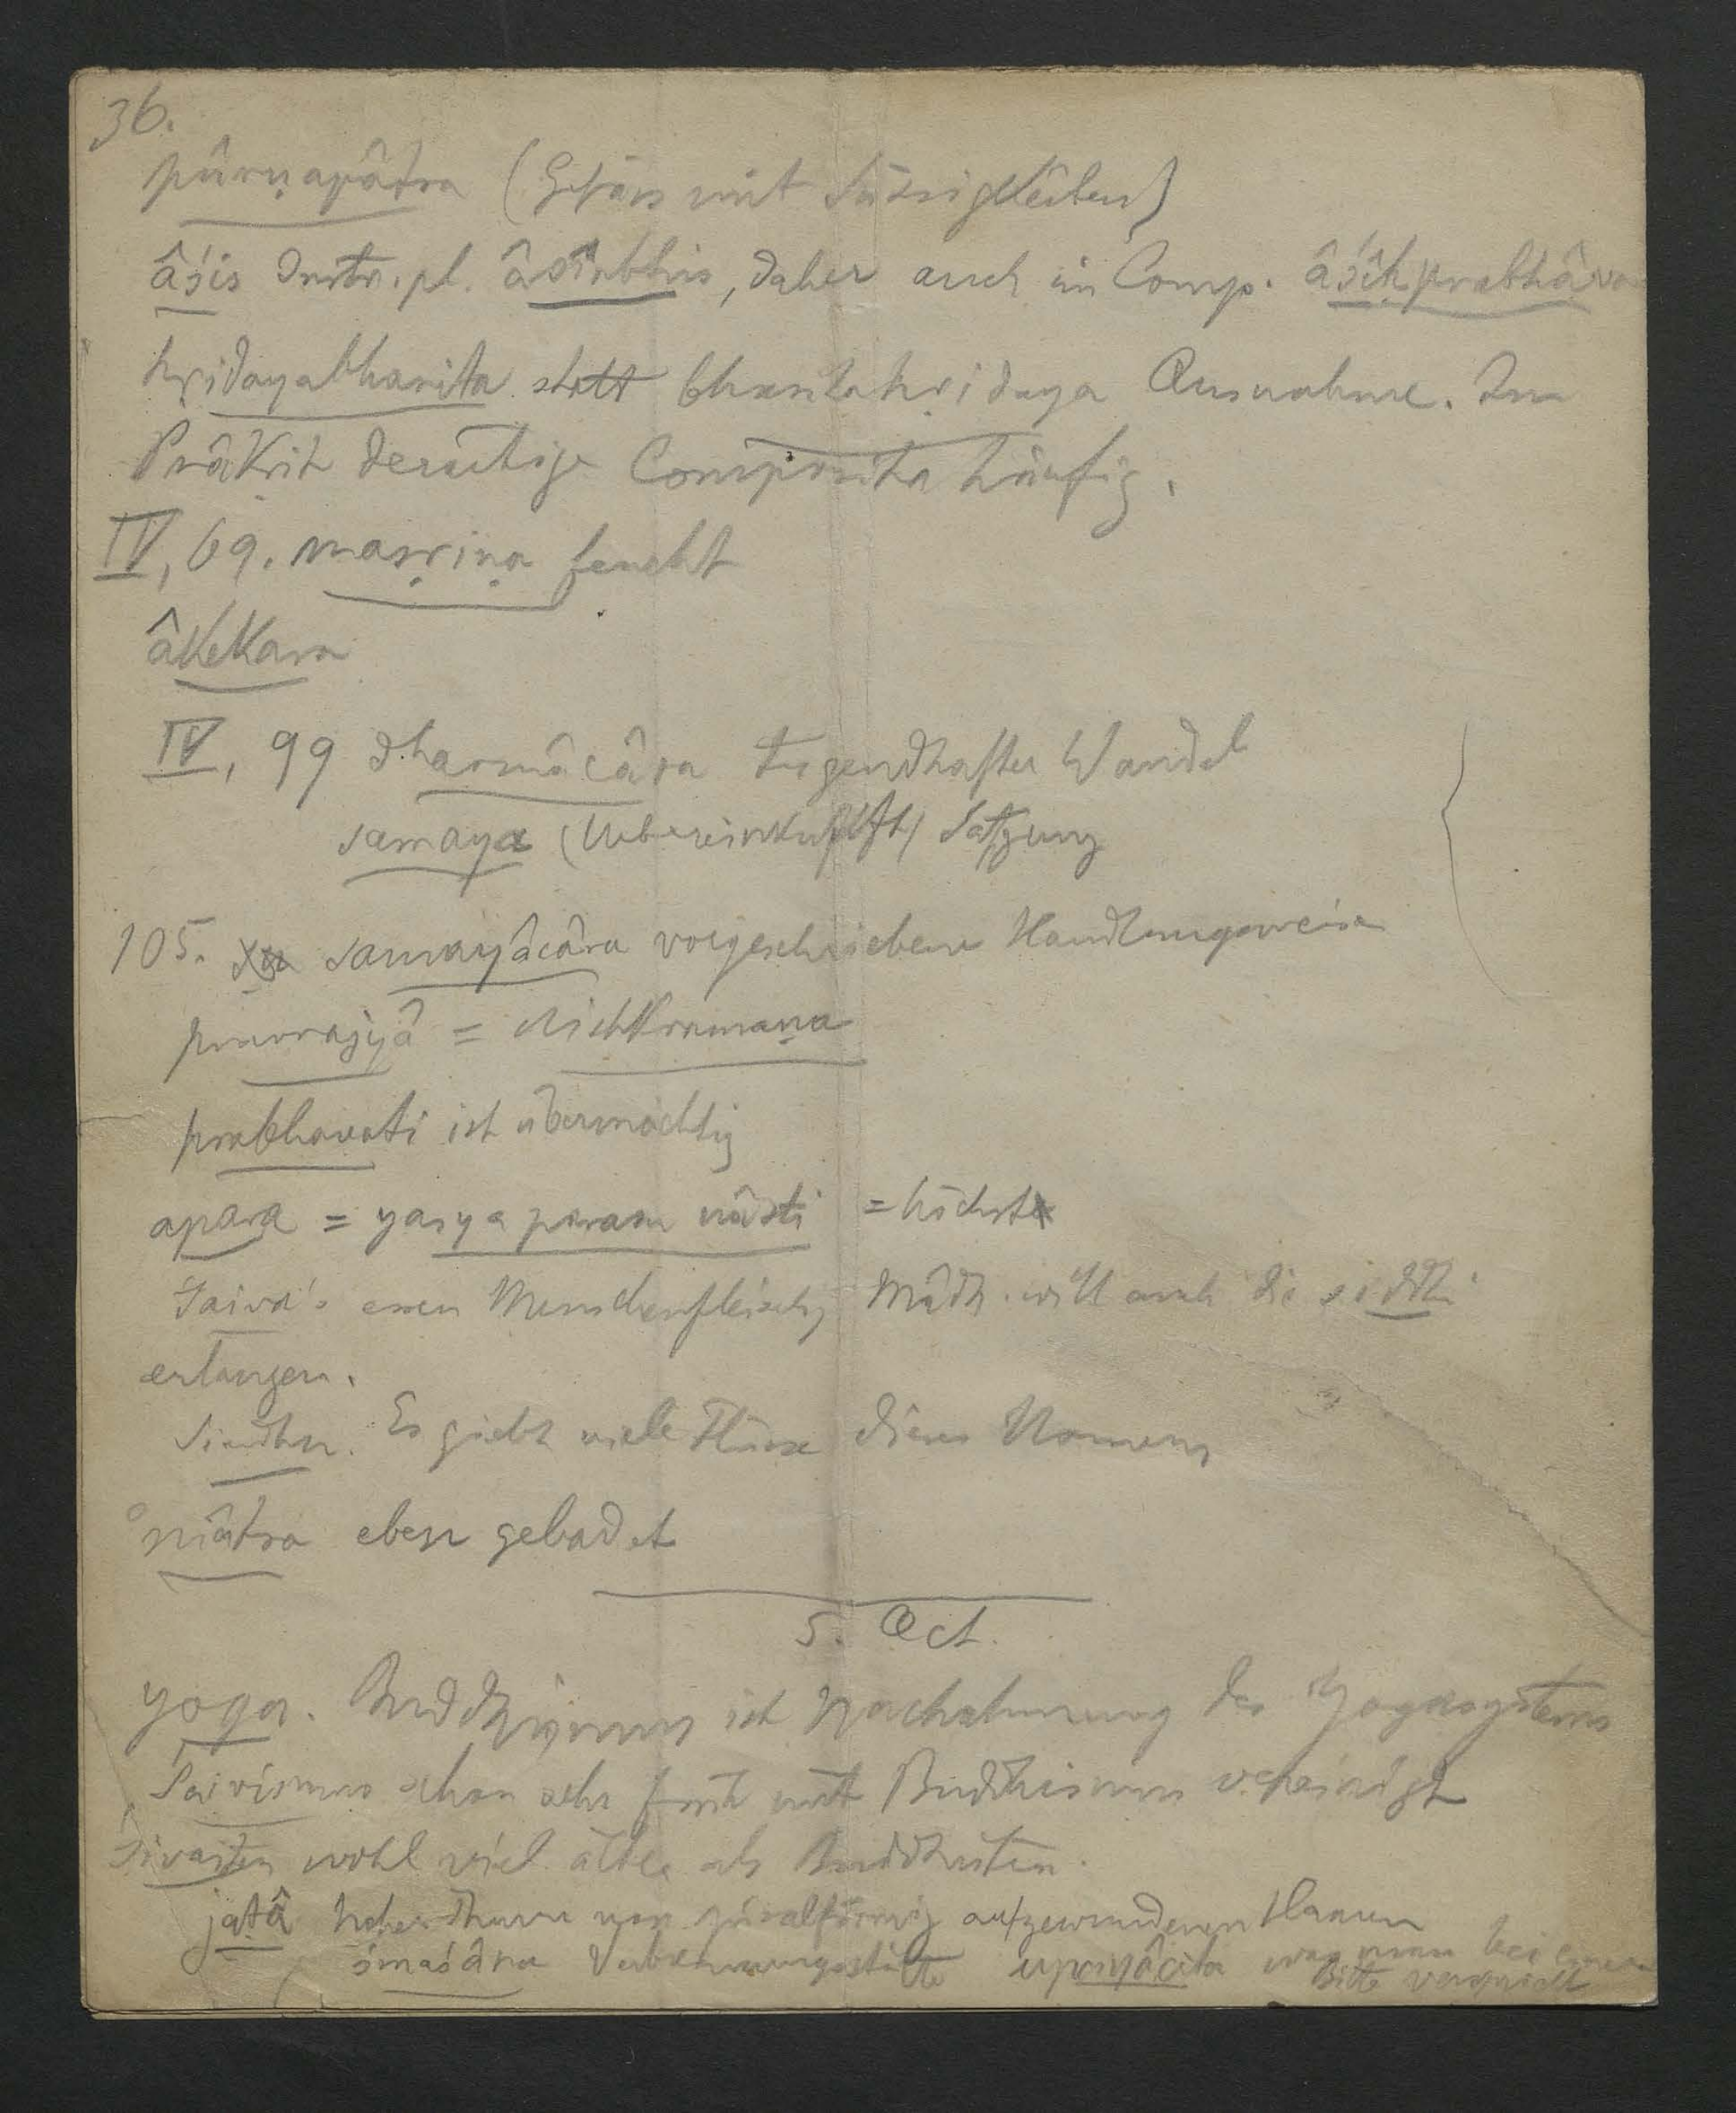 36.
pûrṇapâtra (Gefäss mit Süssigkeiten)
âśis Instr. pl. âśîrbhis, daher auch in Comp. âśîḥprabhâva
hṛidayabharita statt bharitahṛidaya Ausnahme. Im
Prâkṛit derartige Composita häufig.
IV, 69. masṛiṇa feucht
âkekara
IV, 99 dharmâcâra tugendhafter Wandel
samaya (Uebereinkunft) Satzung
105. samayâcâra vorgeschriebene Handlungsweise
pravrajyâ = nishkramaṇa
prabhavati ist übermächtig
apara = yasya param nâsti = höchst
Śaiva's essen Menschenfleisch, Mâdh. will auch die siddhi
erlangen.
Sindhu. Es giebt viele Flüsse dieses Namens
°mâtra eben gebadet
5. Act.
yoga. Buddhismus ist Nachahmung des Yogasystems
Śaivismus schon sehr früh mit Buddhismus vereinigt
Śivaiten wohl viel älter als Buddhisten.
jaṭâ hoher Thurm von spiralförmig aufgewundenen Haaren
śmaśâna Verbrennungsstätte upayâcita was man bei einer
Bitte verspricht